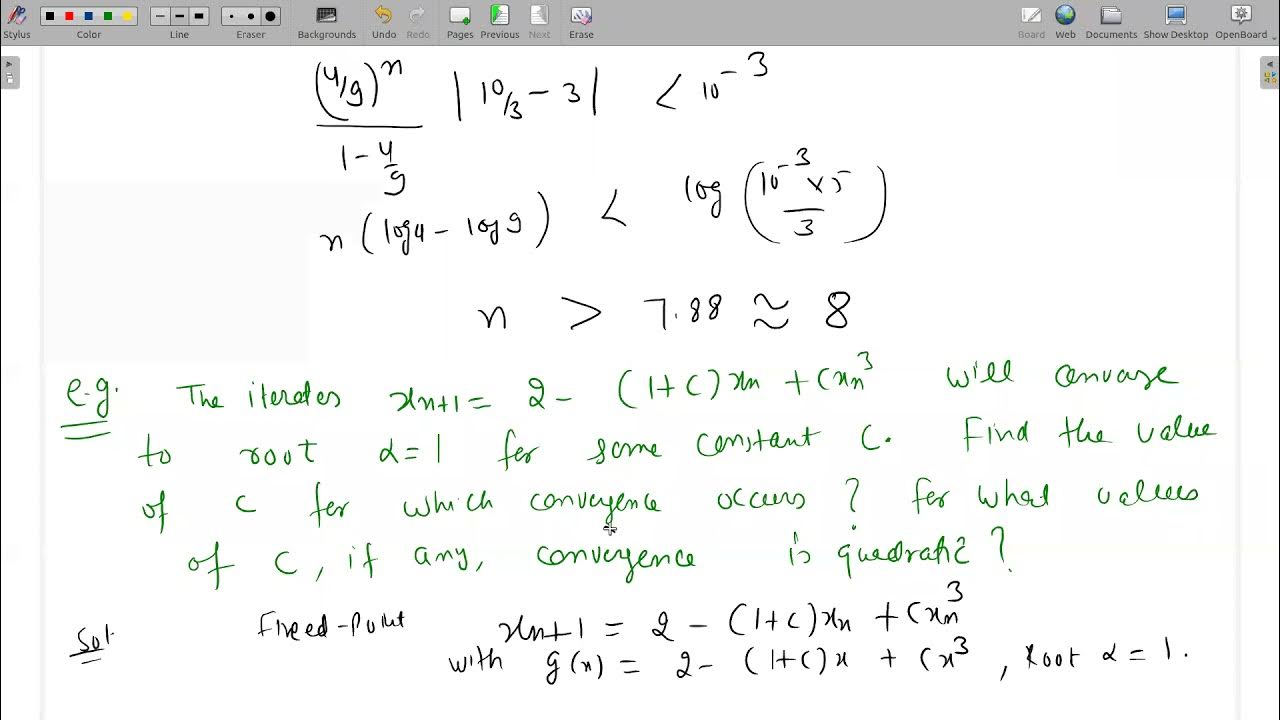 Stylus Color Line Eraser Backgrounds Undo Redo Pages Previous Next Erase Board Web Documents Show Desktop OpenBoard
(4/9)^n / (1 - 4/9) |10/3 - 3| < 10^-3
n (log4 - log9) < log (10^-3 × 5 / 3)
n > 7.88 ≈ 8
e.g. The iterates xn+1 = 2 - (1+C)xn + Cxn^3 will converge
to root α=1 for some constant C. Find the value
of C for which convergence occurs? for what values
of C, if any, convergence is quadratic?
Sol. Fixed-Point xn+1 = 2 - (1+C)xn + Cxn^3
with g(x) = 2 - (1+C)x + Cx^3, root α = 1.